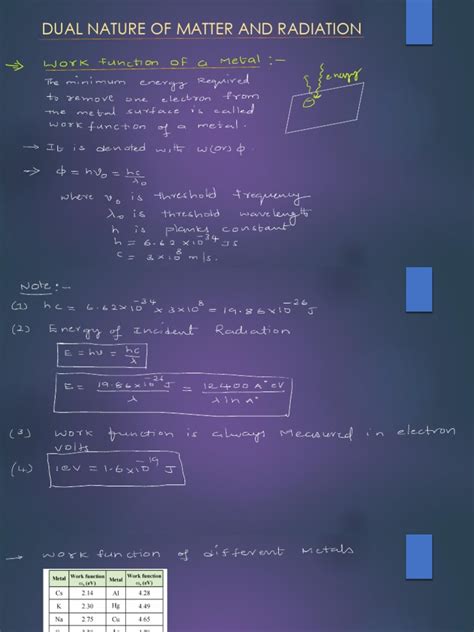 DUAL NATURE OF MATTER AND RADIATION
→ Work function of a Metal :-
energy
The minimum energy Required
to remove one electron from
the metal surface is called
work function of a metal.
→ It is denoted with W(or) ϕ.
→ ϕ = hν₀ = hc/λ₀
where ν₀ is threshold frequency
λ₀ is threshold wavelength
h is planks constant
h = 6.62 × 10⁻³⁴ JS
c = 3×10⁸ m/s.
Note :-
(1) hc = 6.62×10⁻³⁴ × 3×10⁸ = 19.86×10⁻²⁶ J
(2) Energy of Incident Radiation
E = hν = hc/λ
E = 19.86×10⁻²⁶ J/λ = 12400 A° eV/λ in A°
(3) work function is always Measured in electron
volts
(4) 1eV = 1.6×10⁻¹⁹ J
→ work function of different Metals
Metal Work function ω₀ (eV) Metal Work function ω₀ (eV)
Cs 2.14 Al 4.28
K 2.30 Hg 4.49
Na 2.75 Cu 4.65